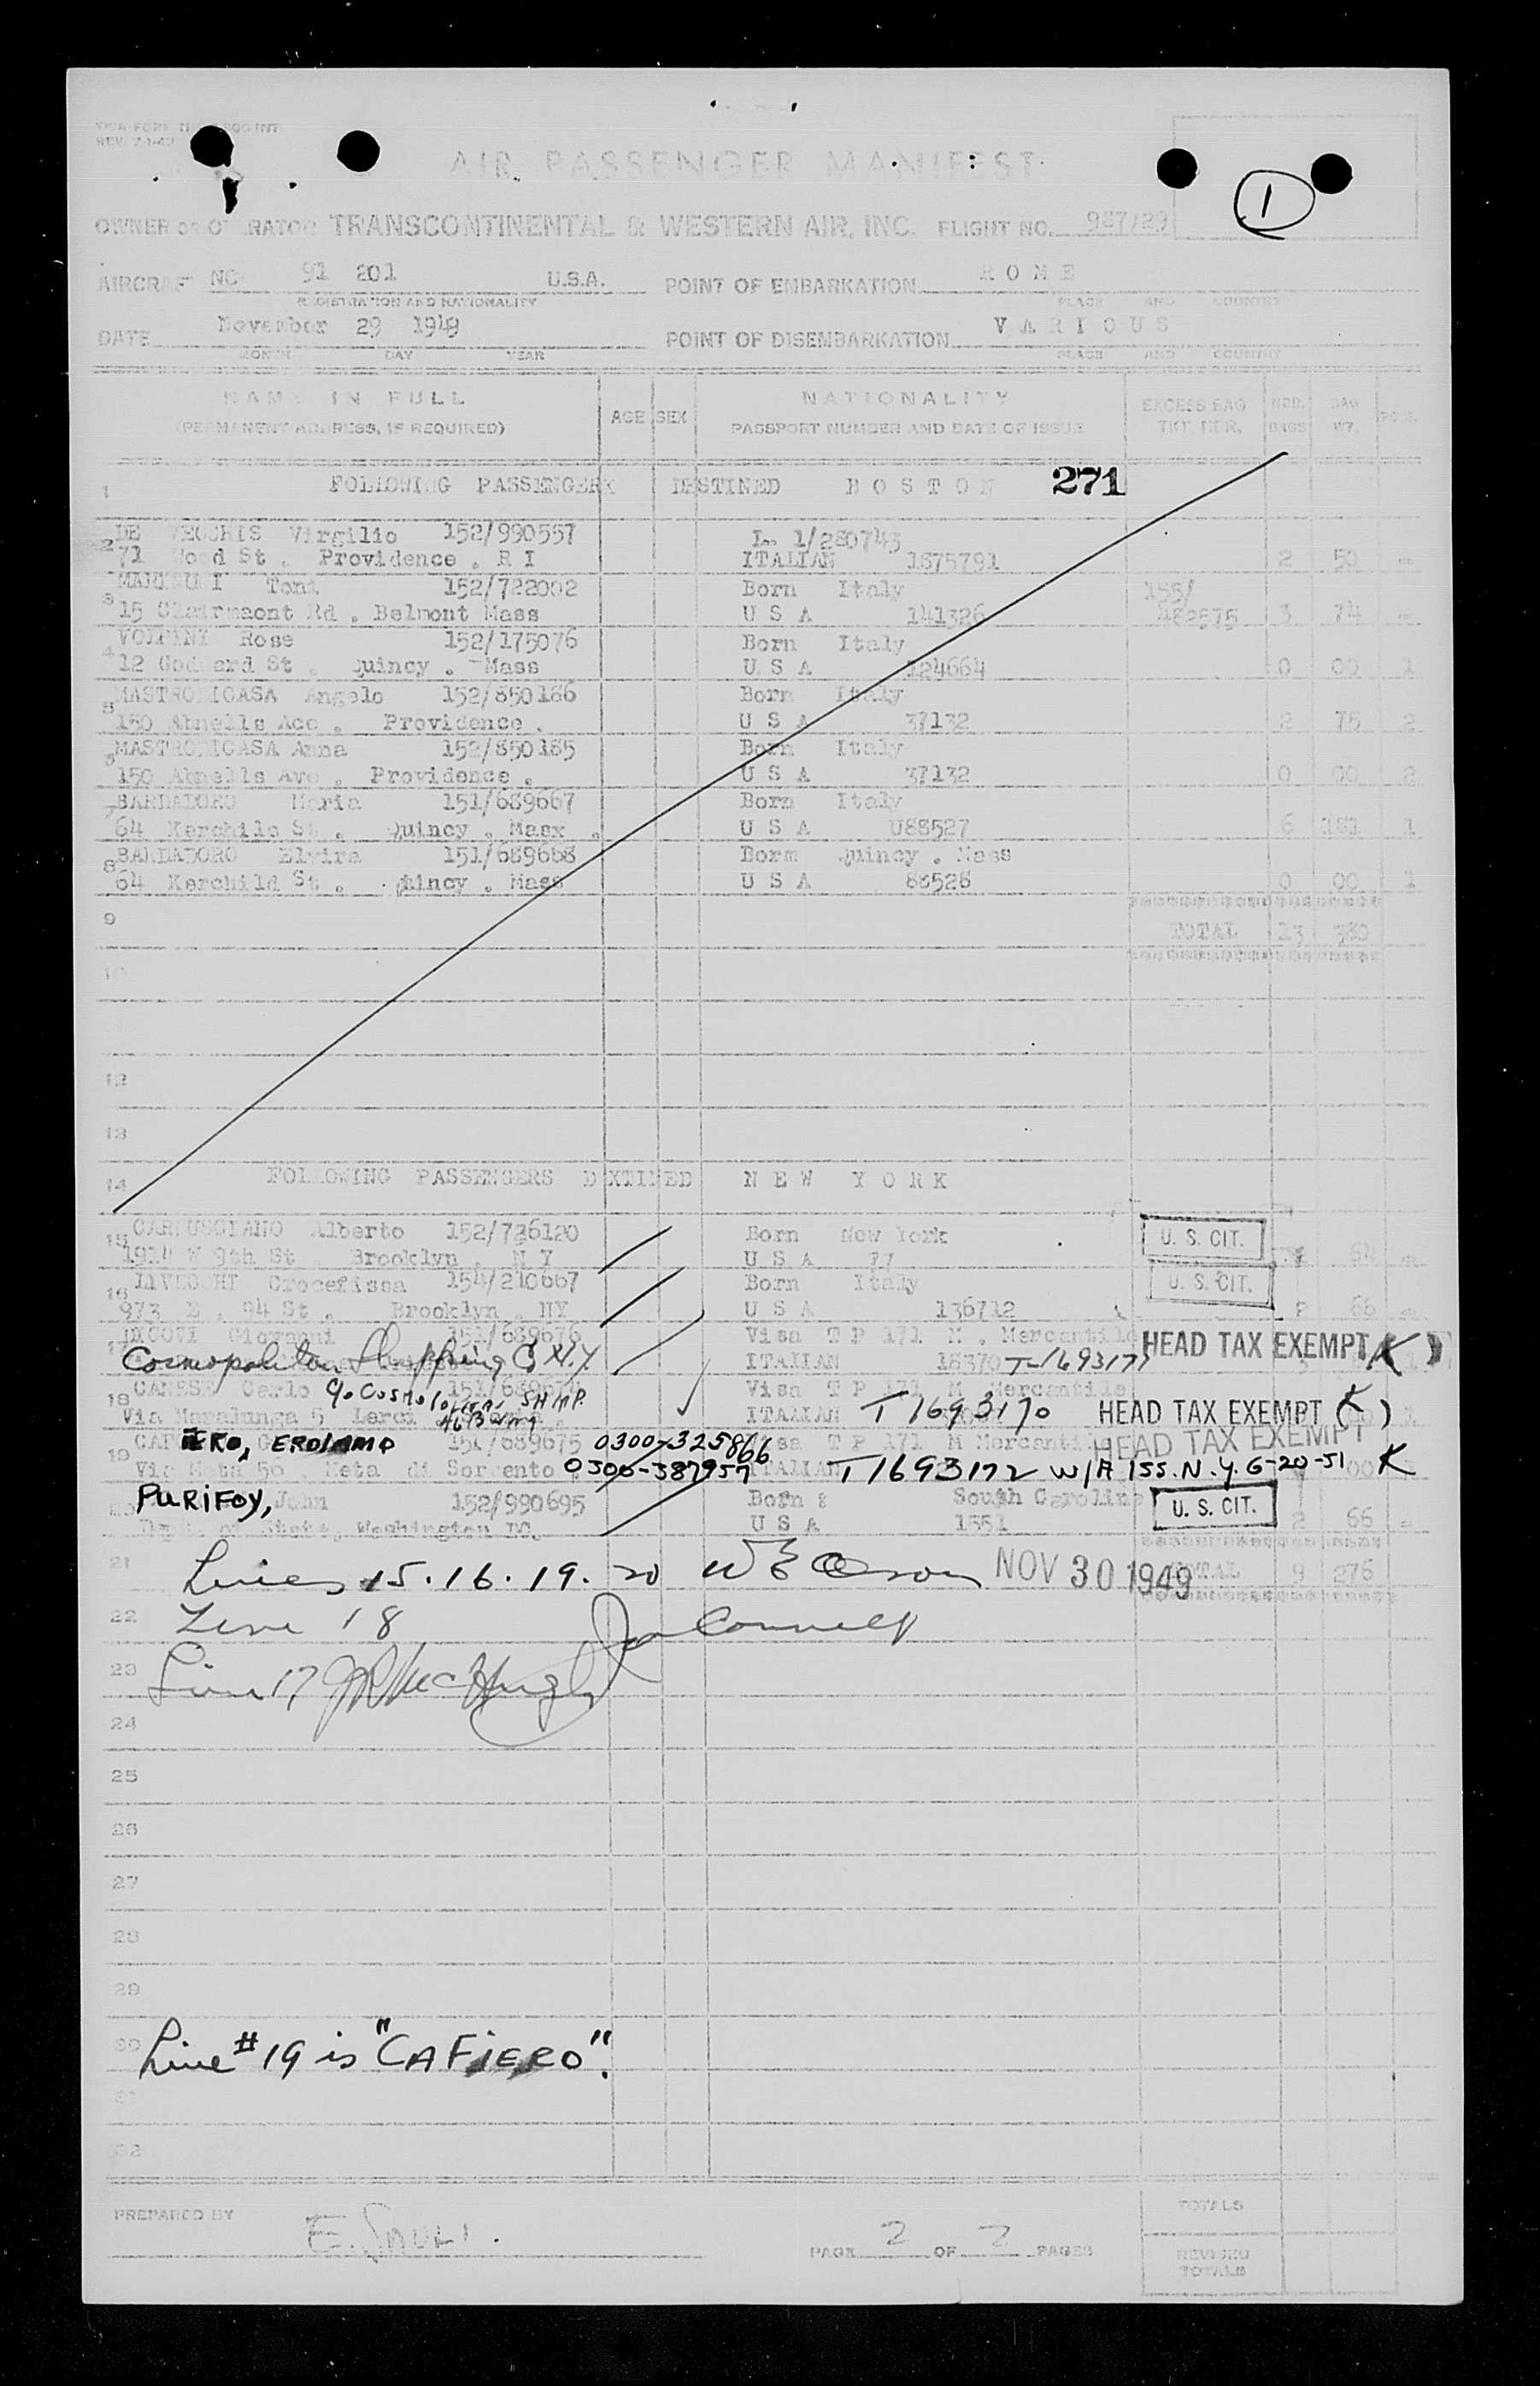 REV. 7-1-47
AIR PASSENGER MANIFEST
1
OWNER OR OPERATOR TRANSCONTINENTAL & WESTERN AIR, INC. FLIGHT NO. 967/29
AIRCRAFT NC 91 201 U.S.A. POINT OF EMBARKATION R O M E
REGISTRATION AND NATIONALITY PLACE AND COUNTRY
DATE November 29 1949 POINT OF DISEMBARKATION V A R I O U S
MONTH DAY YEAR PLACE AND COUNTRY
NAME IN FULL AGE SEX NATIONALITY EXCESS BAG NBR. BAG
(PERMANENT ADDRESS, IF REQUIRED) PASSPORT NUMBER AND DATE OF ISSUE TKT. NBR. BAGS WT.
1 FOLLOWING PASSENGERS DESTINED B O S T O N 271
DE VECCHIS Virgilio 152/990557 1/280743
2 71 Wood St . Providence . R I ITALIAN 1875791 2 50
Toni 152/722002 Born Italy 155/
3 15 Rd . Belmont Mass U S A 141326 482575 3 74
Rose 152/175076 Born Italy
4 12 Goddard St . Quincy . Mass U S A 124664 0 00 1
MASTRODICASA Angelo 152/850186 Born Italy
5 150 Abnells Ace . Providence . U S A 37132 2 75 2
MASTRODICASA Anna 152/850185 Born Italy
6 150 Abnells Ave . Providence . U S A 37132 0 00 2
BARBADORO Maria 151/689667 Born Italy
7 64 Kerchils St . Quincy . Masx . U S A U88527 6 181 1
BARBADORO Elvira 151/689668 Born Quincy . Mass
8 64 Kerchild St . Quincy . Mass U S A 88528 0 00 1
9 TOTAL 13 380
10
12
13
14 FOLLOWING PASSENGERS DXTINED N E W Y O R K
15 CARPUSCIANO Alberto 152/736120 Born New York U. S. CIT.
1914 W 9th St . Brooklyn . N Y U S A 77 64
16 LIVECCHI Crocefissa 154/210667 Born Italy U. S. CIT.
973 E . 94 St . Brooklyn . NY U S A 136712 2 66
17 Giovanni 151/689676 Visa T P 171 M . Mercantile HEAD TAX EXEMPT (K)
Cosmopolitan Shipping Co N.Y. ITALIAN T-1693171
18 CANESE Carlo c/o Cosmopolitan SHIP. Visa T P 171 M Mercantile
Via Maralunga 5 Lerci ITALIAN T1693170 HEAD TAX EXEMPT (K)
19 IERO, EROLAMO 151/689675 0300-325866 Visa T P 171 M Mercantile HEAD TAX EXEMPT
Via Meta 56 . Meta di Sorrento 0300-387957 ITALIAN T1693172 W/A ISS. N.Y. 6-20-51 K
20 PURIFOY, John 152/990695 Born : South Carolina U. S. CIT.
Dept. of State, Washington DC. U S A 1551 2 66
21 Lines 15. 16. 19. 20 NOV 30 1949 TOTAL 9 276
22 Line 18
23 Line 17 McHugh
24
25
26
27
28
29
30 Line #19 is "CAFIERO".
31
32
PREPARED BY TOTALS
PAGE 2 OF 2 PAGES REVISED
TOTALS